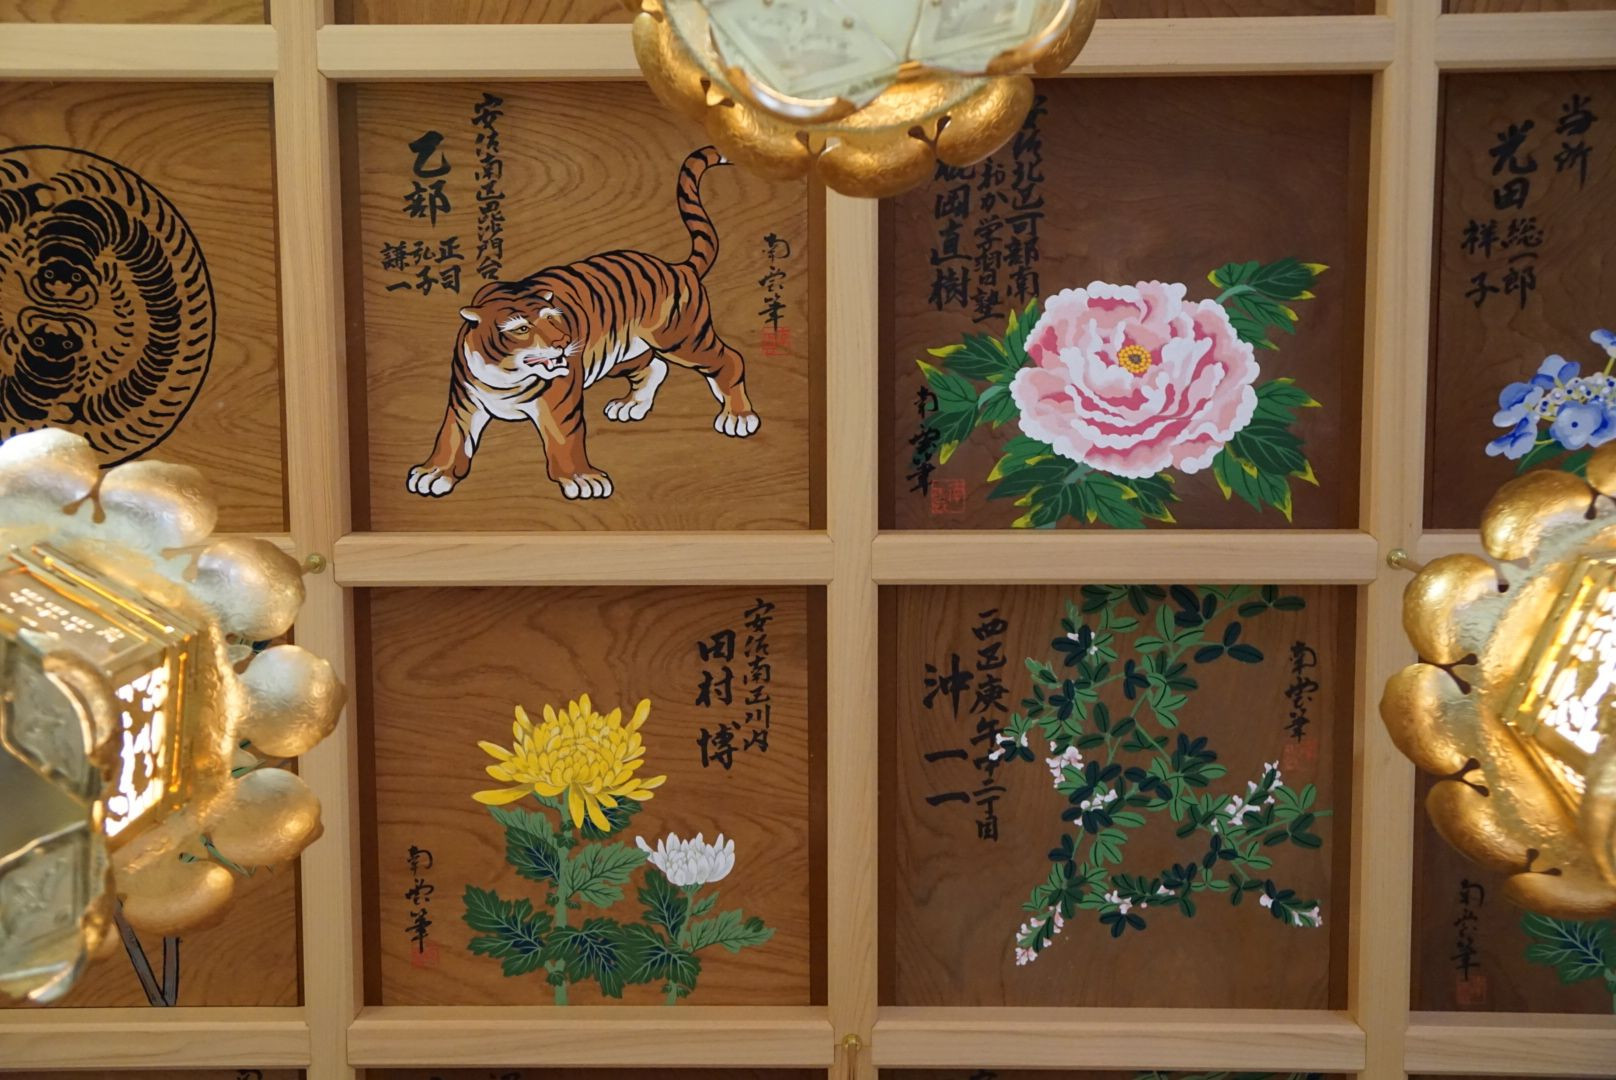 安佐南区毘沙門台
乙部
正司
弘子
謙一
南雲筆
安佐北区可部南
おか学習塾
岡直樹
南雲筆
当所
光田
総一郎
祥子
安佐南区川内
田村博
南雲筆
西区庚午中二丁目
沖一一
南雲筆
南雲筆